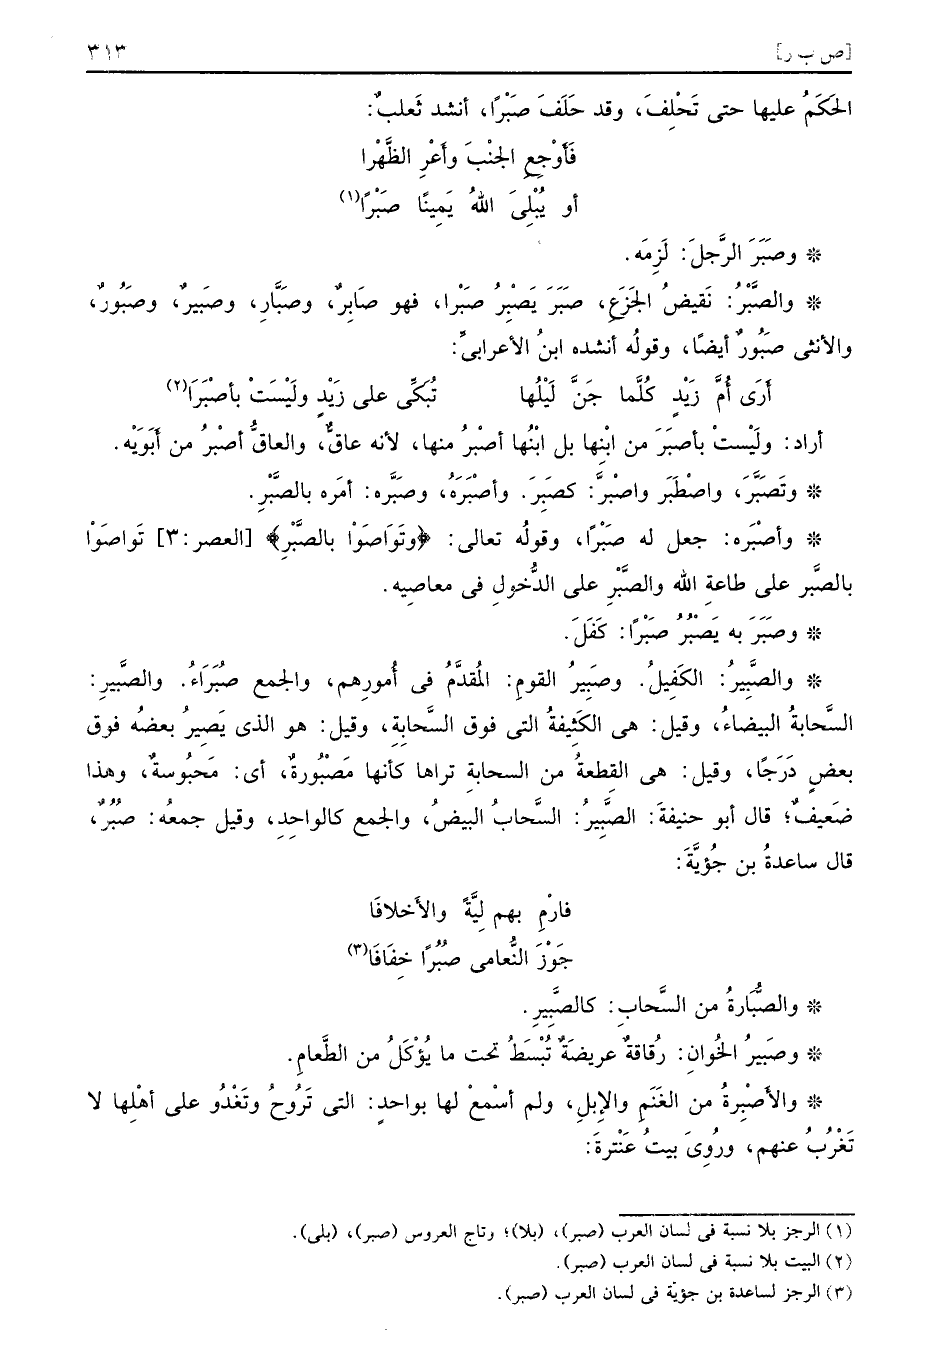 [ص ب ر] ٣١٣
الحَكَمُ عليها حتى تَحْلِفَ، وقد حَلَفَ صَبْرًا، أنشد ثَعلبٌ:
فَأَوْجِعِ الجَنْبَ وأَعْرِ الظَّهْرا
أو يُبْلِىَ اللهُ يَمِينًا صَبْرًا(١)
* وصَبَرَ الرَّجلَ: لَزِمَه.
* والصَّبْرُ: نَقيضُ الجَزَعِ، صَبَرَ يَصْبِرُ صَبْرا، فهو صَابِرٌ، وصَبَّارِ، وصَبيرٌ، وصَبُورٌ،
والأنثى صَبُورٌ أيضًا، وقولُه أنشده ابنُ الأعرابىِّ:
أَرَى أُمَّ زَيْدٍ كُلَّما جَنَّ لَيْلُها تُبَكِّى على زَيْدٍ ولَيْسَتْ بأصْبَرَا(٢)
أراد: ولَيْستْ بأصبَرَ من ابْنِها بل ابْنُها أصْبَرُ منها، لأنه عاقٌّ، والعاقُّ أصْبرُ من أَبَوَيْه.
* وتَصبَّرَ، واصْطَبَر واصْبرَّ: كصَبَرَ. وأصْبَرَهُ، وصَبَّره: أمَره بالصَّبْرِ.
* وأصْبَره: جعل له صَبْرًا، وقولُه تعالى: ﴿وتَوَاصَوْا بالصَّبْرِ﴾ [العصر:٣] تَواصَوْا
بالصَّبر على طاعةِ الله والصَّبْرِ على الدُّخولِ فى معاصيه.
* وصَبَرَ به يَصْبُرُ صَبْرًا: كَفَلَ.
* والصَّبِيرُ: الكَفيلُ. وصَبيرُ القومِ: المُقدَّمُ فى أُمورِهم، والجمع صُبَرَاءُ. والصَّبيرِ:
السَّحابةُ البيضاءُ، وقيل: هى الكَثيفةُ التى فوق السَّحابةِ، وقيل: هو الذى يَصيرُ بعضُه فوق
بعضٍ دَرَجًا، وقيل: هى القطعةُ من السحابةِ تراها كأنها مَصْبُورةٌ، أى: مَحبُوسةٌ، وهذا
ضَعيفٌ؛ قال أبو حنيفةَ: الصَّبِيرُ: السَّحابُ البيضُ، والجمع كالواحِدِ، وقيل جمعُه: صُبُرٌ،
قال ساعدةُ بن جُؤيَّةَ:
فارْمِ بهم لِيَّةَ والأَخلافَا
جَوْزَ النُّعامى صُبُرًا خِفَافَا(٣)
* والصُّبَارةُ من السَّحابِ: كالصَّبِيرِ.
* وصَبيرُ الخُوانِ: رُقاقةٌ عريضَةٌ تُبْسَطُ تحت ما يُؤْكَلُ من الطَّعامِ.
* والأَصْبِرةُ من الغَنَمِ والإِبلِ، ولم أسْمعْ لها بواحدٍ: التى تَرُوحُ وتَغْدُو على أهْلِها لا
تَغْرُبُ عنهم، ورُوِىَ بيتُ عَنْترةَ:
(١) الرجز بلا نسبة فى لسان العرب (صبر)، (بلا)؛ وتاج العروس (صبر)، (بلى).
(٢) البيت بلا نسبة فى لسان العرب (صبر).
(٣) الرجز لساعدة بن جؤيّة فى لسان العرب (صبر).